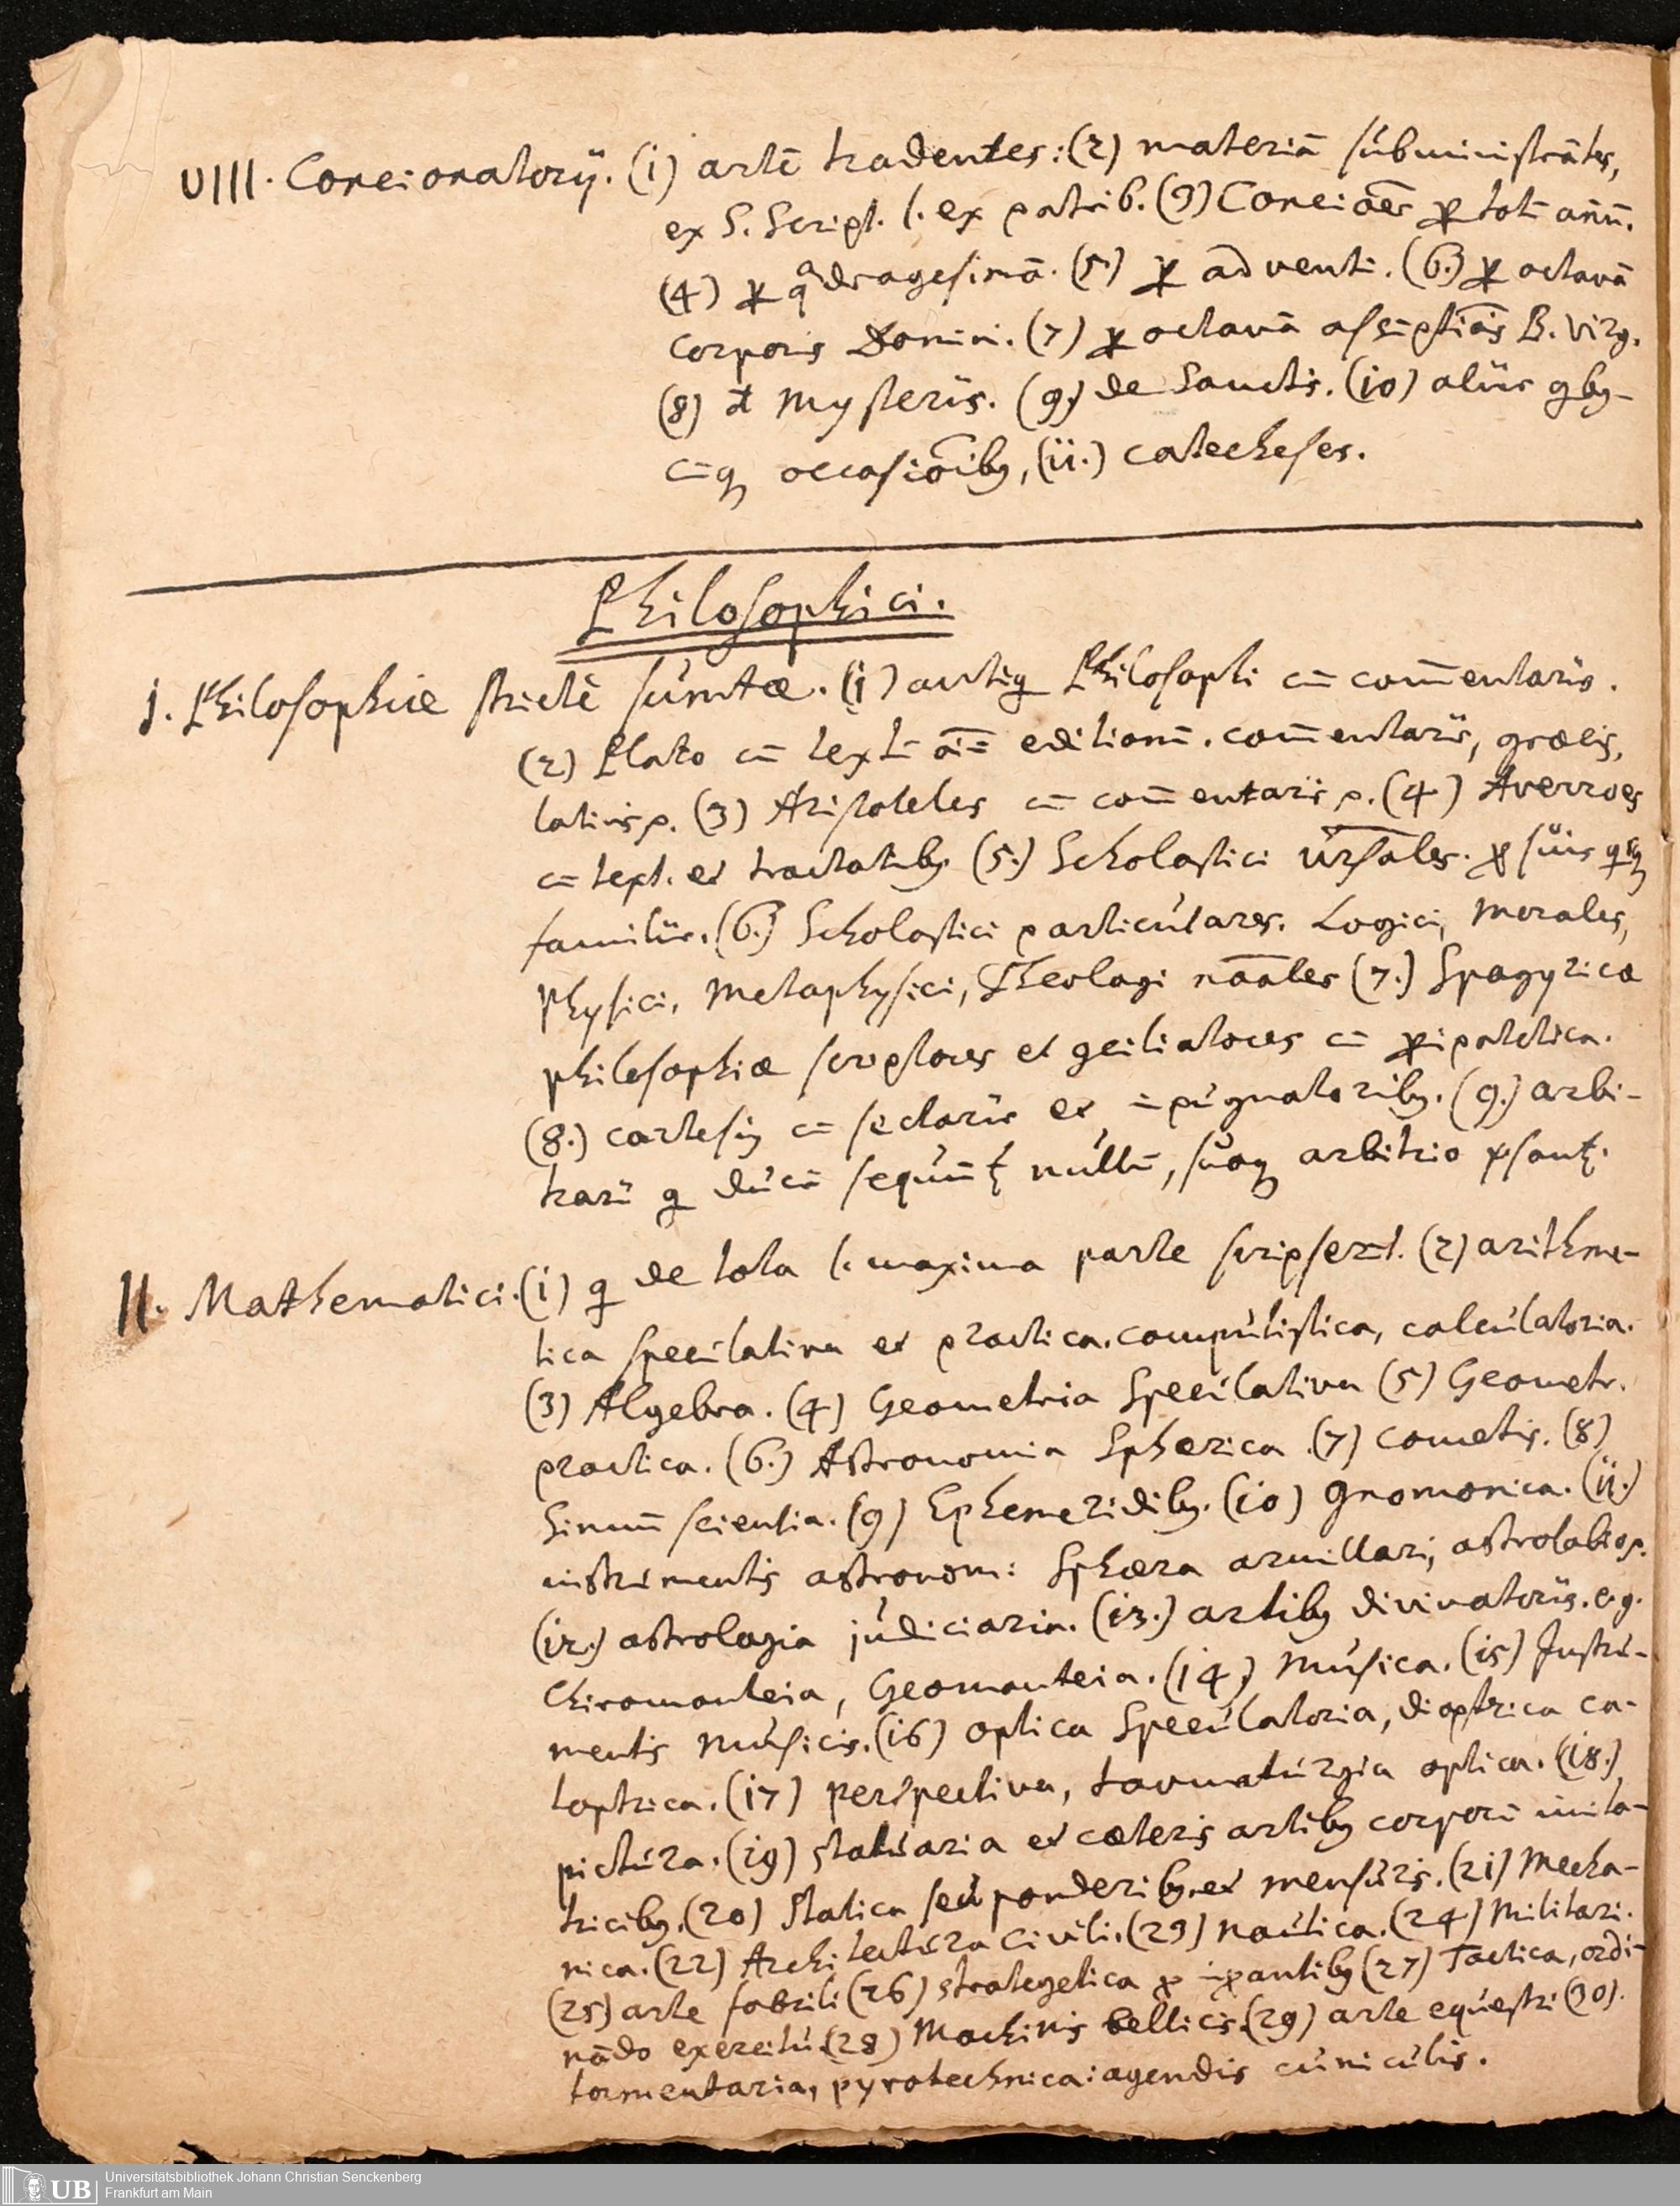 VIII. Concionatorij. (i) artē tradentes: (2) materiā subministrātes,
ex S. Script. l. ex patrib. (3) Concioēs ꝓ totū annū.
(4) ꝓ qadragesimā. (5.) ꝓ adventū. (6.) ꝓ octavā
Corporis Domini. (7) ꝓ octavā assūptiōis B. Virg.
(8) d Mysterijs. (9.) de Sanctis. (io) alijs qbꝫ-
cūqꝫ occasiōibꝫ, (ii.) catecheses.
Philosophici.
I. Philosophiæ strictè sumtæ. (i) antiq Philosophi cū com̄entarijs.
(2) Plato cū textū oiū editionū. com̄entarijs, græcis,
latinis p. (3) Aristoteles cū com̄entarijs p. (4) Averroes
cū text. et tractatibꝫ (5.) Scholastici ūrsales. ꝓ suis qsqꝫ
familijs. (6.) Scholastici particulares. Logici, Morales,
Physici, Metaphysici, Theologi naāles (7.) Spagyricæ
philosophiæ scriptores et cōciliatores cū ꝑipatetica.
(8.) cartesiꝫ cū sectarijs et īpugnatoribꝫ. (9.) arbi-
trarij q ducē sequūt nullū, suoqꝫ arbitrio ꝟsant.
II. Mathematici. (i) q de tota l. maxima parte scripserūt. (2) arithme-
tica speculativa et practica. computistica, calculatoria.
(3) Algebra. (4) Geometria Speculativa (5) Geometr.
practica. (6.) Astronomia Spherica (7) cometis. (8)
Sinuum scientia. (9) Ephemeridibꝫ. (io) gnomonica. (ii.)
instrumentis astronom: Sphæra armillari, astrolabio p.
(i2.) astrologia judiciaria. (i3.) artibꝫ divinatorijs. e.g.
Chiromanteia, Geomanteia. (i4.) Musica. (i5) Instru-
mentis Musicis. (i6) optica Speculatoria, dioptrica ca-
toptrica. (i7) perspectiva, taumaturgia optica. (i8.)
pictura. (i9) statuaria et cæteris artibꝫ corporū imita-
tricibꝫ. (20) Statica seu ponderibꝫ et mensuris. (2i) Mecha-
nica. (22) Architectura civili. (23) nautica. (24) Militari.
(25) arte fabrili (26) strategetica ꝓ īꝑantibꝫ (27) Tactica, ordi-
nādo exercitu. (28) Machinis bellicis. (29) arte equestri (30).
tormentaria, pyrotechnica: agendis cuniculis.
Universitätsbibliothek Johann Christian Senckenberg
Frankfurt am Main
UB